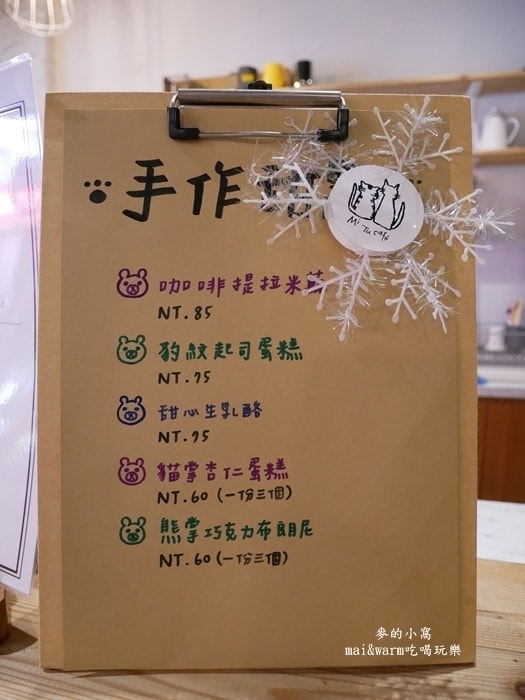 手作
Mi Tu café
咖啡提拉米蘇
NT.85
豹紋起司蛋糕
NT.75
甜心生乳酪
NT.75
貓掌杏仁蛋糕
NT.60 (一份三個)
熊掌巧克力布朗尼
NT.60 (一份三個)
麥的小窩
mai&warm吃喝玩樂